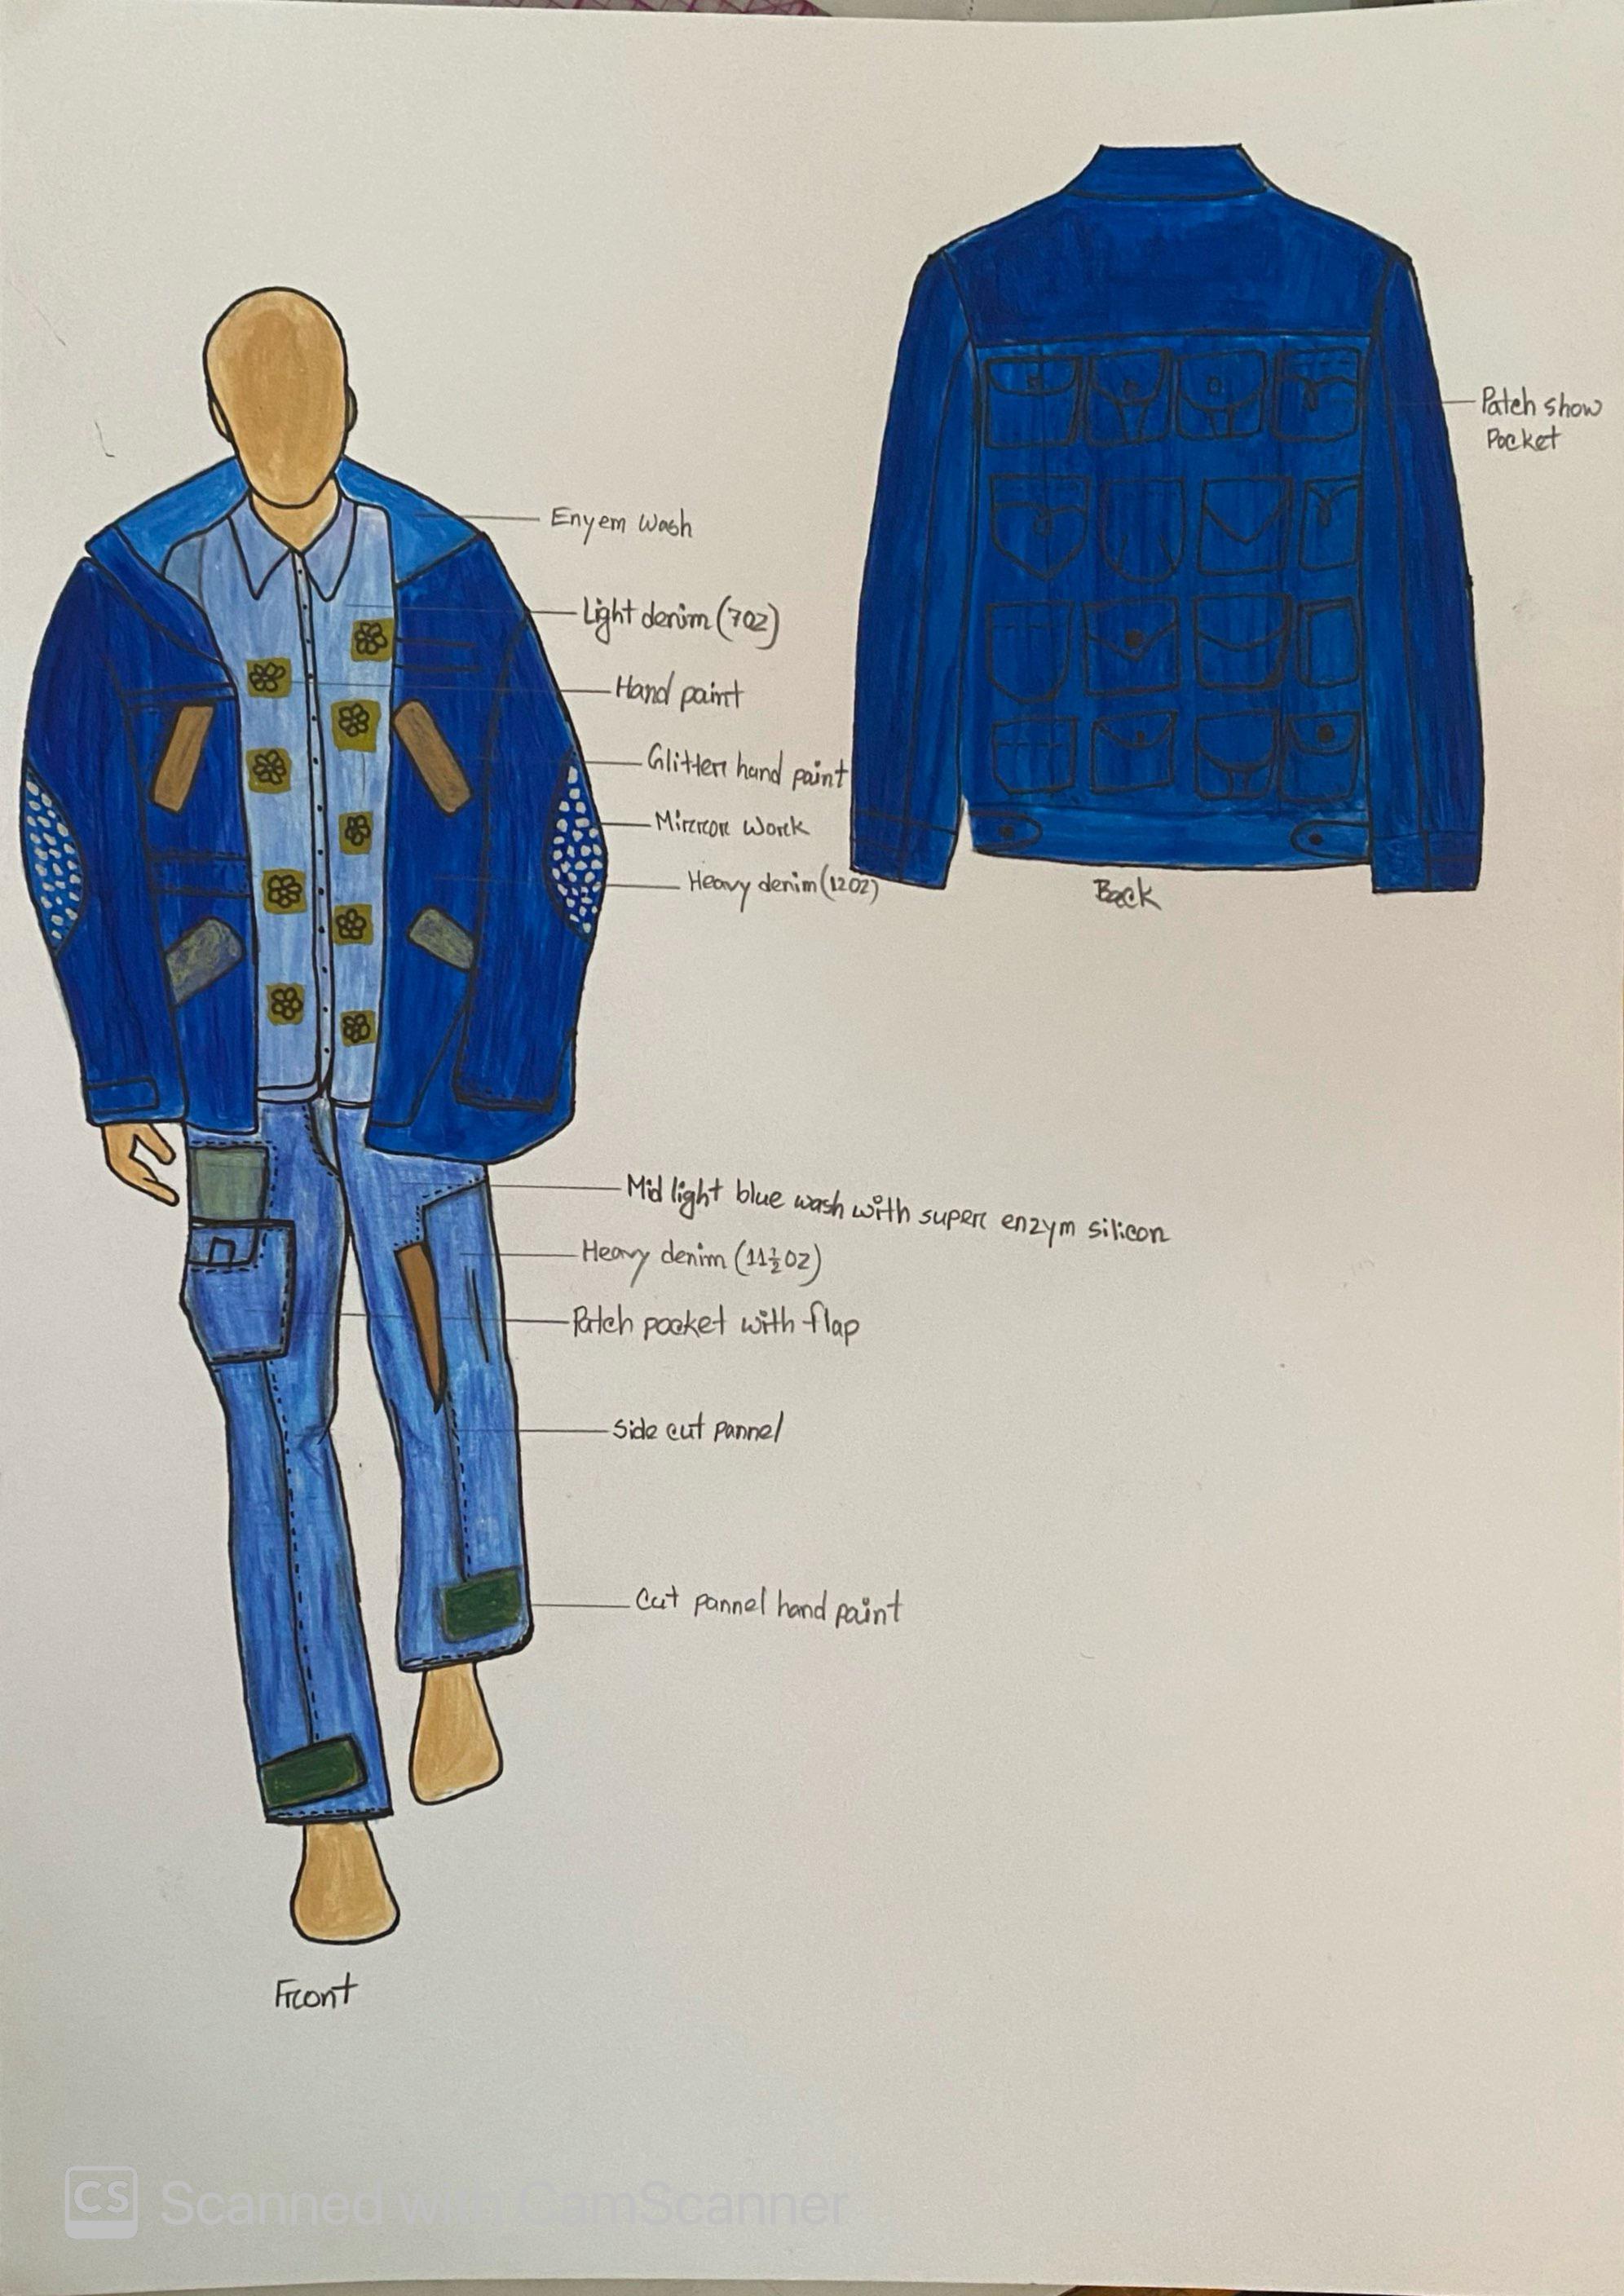 Patch show
Pocket
Enyem wash
Light denim (7OZ)
Hand paint
Glitter hand paint
Mirror work
Heavy denim (12OZ)
Back
Mid light blue wash with super enzym silicon
Heavy denim (11½OZ)
Patch pocket with flap
Side cut pannel
Cut pannel hand paint
Front
CS Scanned with CamScanner